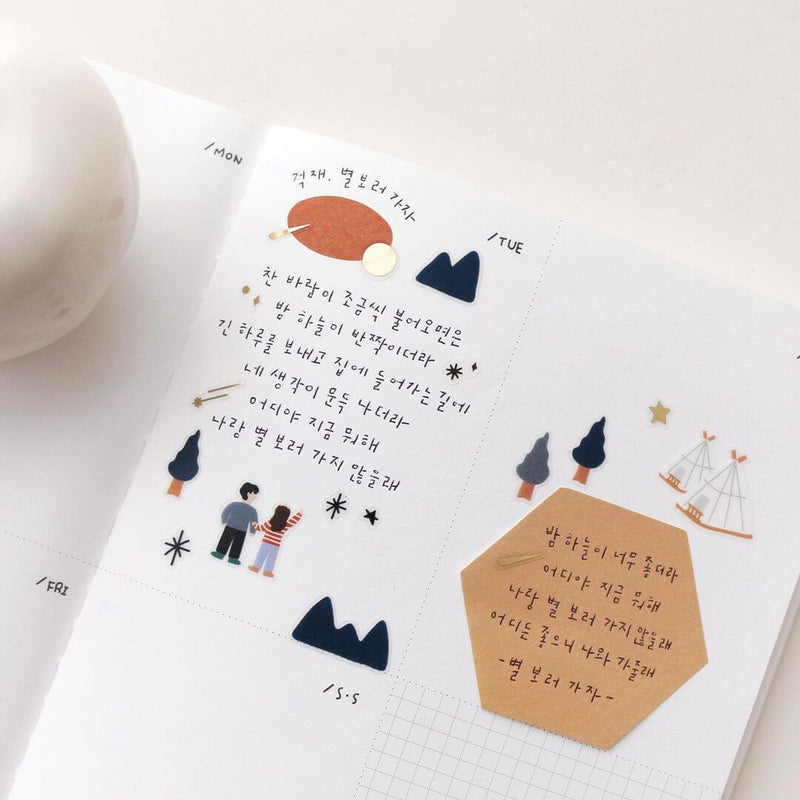 /MON
적재, 별 보러 가자
/TUE
찬 바람이 조금씩 불어오면은
밤 하늘이 반짝이더라
긴 하루를 보내고 집에 들어가는 길에
네 생각이 문득 나더라
어디야 지금 뭐해
나랑 별 보러 가지 않을래
밤 하늘이 너무 좋더라
어디야 지금 뭐해
나랑 별 보러 가지 않을래
어디든 좋으니 나와 가줄래
-별 보러 가자-
/FRI
/S.S